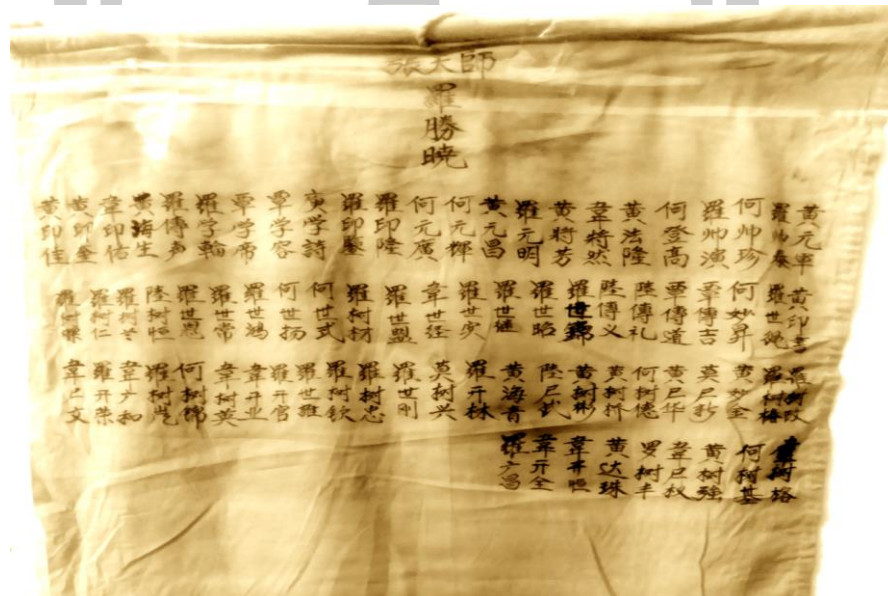 張天師
羅勝曉
黃元軍
羅帅
何帅珍
羅帅演
何登高
黃法隆
韋特然
黃将芳
羅元明
黃元昌
何元輝
何元廣
羅印隆
羅印鑒
学詩
覃学容
覃学帝
羅字輪
羅傳声
黃海生
韋印佑
黃印金
黃印佳
黃印書
羅世說
何妙昇
覃傳吉
覃傳道
陸傳礼
陸傳义
羅世錦
羅世昭
羅世
羅世实
韋世经
羅世盟
羅树材
何世式
何世扬
羅世鴻
羅世常
羅世恩
陸树恒
羅树兰
羅树仁
羅树
羅树玫
羅树榕
黃妙全
莫尸新
黃尸华
何树德
黃树桥
黃树彬
陸尸武
黃海青
羅开林
莫树兴
羅世刚
羅树忠
羅树钦
羅世雅
羅开官
韋开业
韋树英
何树锦
羅树
韋广和
羅开荣
韋文
韋树格
何树基
黃树强
韋尸权
罗树丰
黃达珠
韋开恒
韋开全
羅广昌